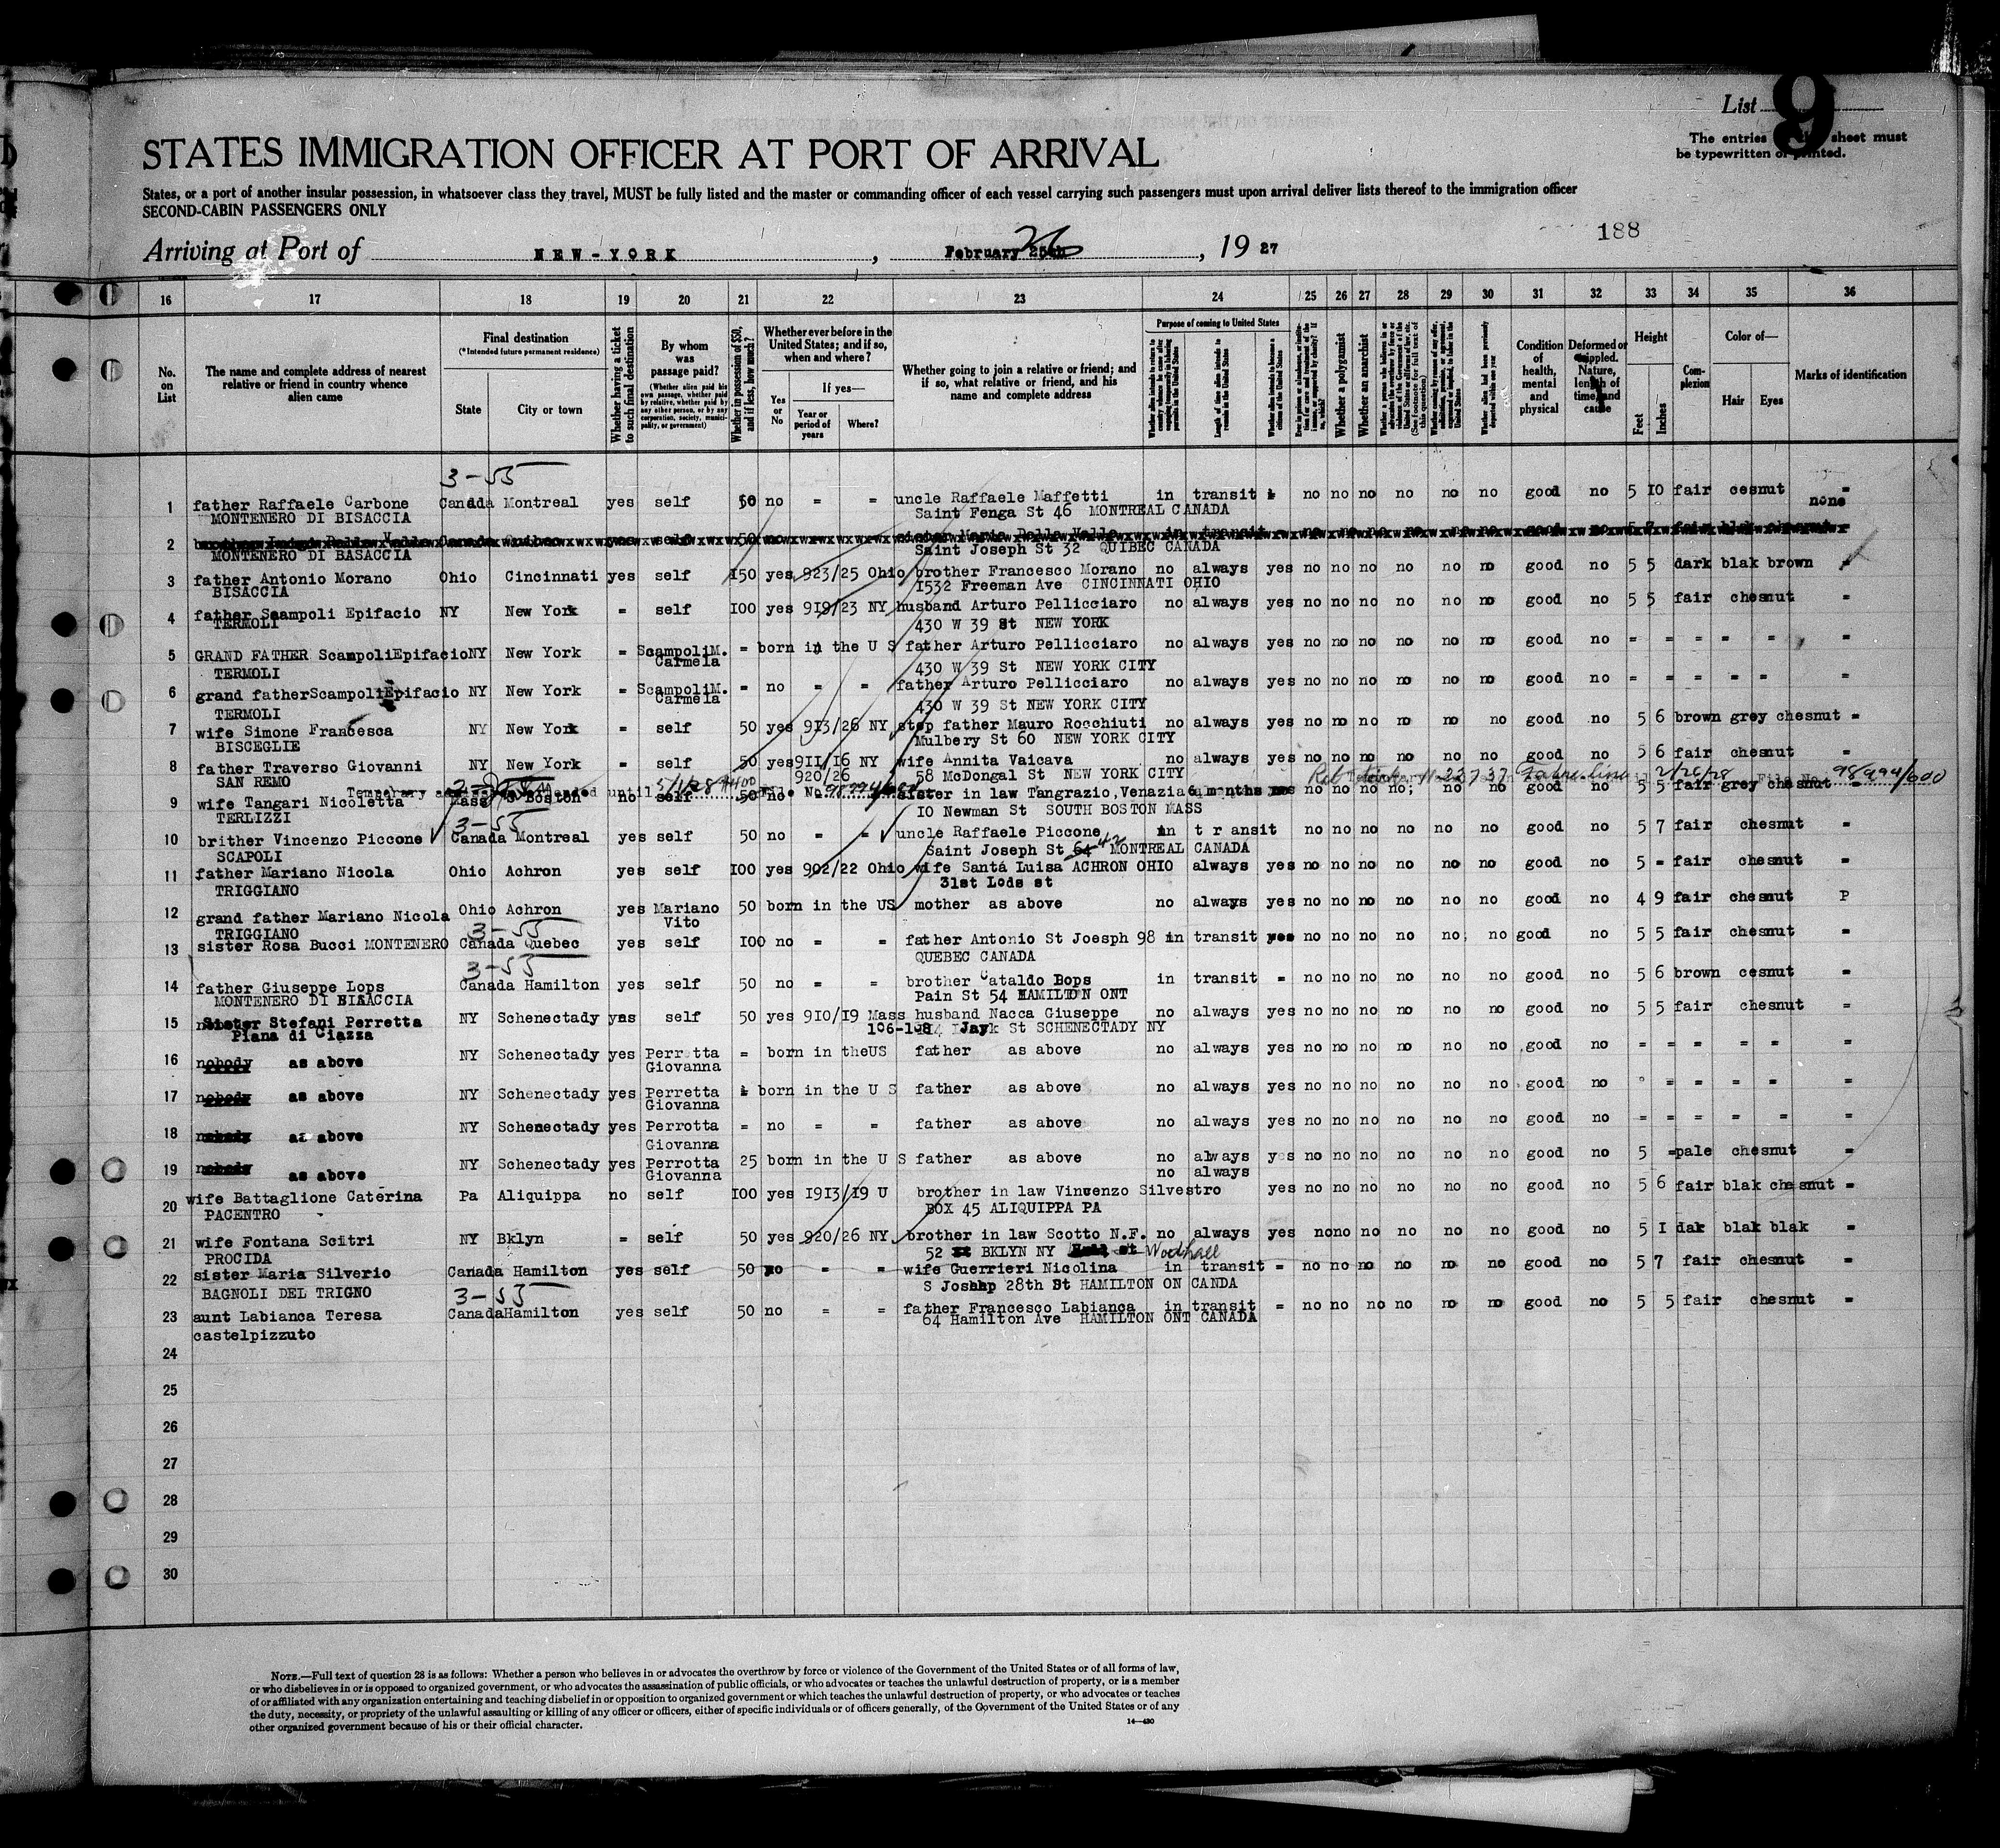 List 9
The entries sheet must
be typewritten or printed.
STATES IMMIGRATION OFFICER AT PORT OF ARRIVAL
States, or a port of another insular possession, in whatsoever class they travel, MUST be fully listed and the master or commanding officer of each vessel carrying such passengers must upon arrival deliver lists thereof to the immigration officer
SECOND-CABIN PASSENGERS ONLY
188
Arriving at Port of NEW-YORK , February 25th 26 , 19 27
16 17 18 19 20 21 22 23 24 25 26 27 28 29 30 31 32 33 34 35 36
No. on List
The name and complete address of nearest relative or friend in country whence alien came
Final destination
(*Intended future permanent residence)
State
City or town
Whether having a ticket to such final destination
By whom was passage paid?
(Whether alien paid his own passage, whether paid by relative, whether paid by any other person, or by any corporation, society, municipality, or government)
Whether in possession of $50, and if less, how much?
Whether ever before in the United States; and if so, when and where?
Yes or No
If yes—
Year or period of years
Where?
Whether going to join a relative or friend; and if so, what relative or friend, and his name and complete address
Purpose of coming to United States
Length of time alien intends to remain in the United States
Whether alien intends to become a citizen of the United States
Whether a polygamist
Whether an anarchist
Condition of health, mental and physical
Deformed or crippled. Nature, length of time, and cause
Height
Feet
Inches
Complexion
Color of—
Hair
Eyes
Marks of identification
3-55
1 father Raffaele Carbone Canada Montreal yes self 50 no = = uncle Raffaele Maffetti in transit no no no no no no good no 5 10 fair cesnut =
MONTENERO DI BISACCIA Saint Fenga St 46 MONTREAL CANADA none
2
MONTENERO DI BASACCIA Saint Joseph St 32 QUIBEC CANADA
3 father Antonio Morano Ohio Cincinnati yes self 150 yes 923/25 Ohio brother Francesco Morano no always yes no no no no no no good no 5 5 dark blak brown
BISACCIA 1532 Freeman Ave CINCINNATI OHIO
4 father Scampoli Epifacio NY New York = self 100 yes 919/23 NY husband Arturo Pellicciaro no always yes no no no no no no good no 5 5 fair chesnut =
TERMOLI 430 W 39 St NEW YORK
5 GRAND FATHER ScampoliEpifacio NY New York = ScampoliM. = born in the U S father Arturo Pellicciaro no always yes no no no no no no good no = = = = = =
TERMOLI Carmela 430 W 39 St NEW YORK CITY
6 grand fatherScampoliEpifacio NY New York = ScampoliM. = no = = father Arturo Pellicciaro no always yes no no no no no no good no = = = = = =
TERMOLI Carmela 430 W 39 St NEW YORK CITY
7 wife Simone Francesca NY New York = self 50 yes 913/26 NY step father Mauro Rocchiuti no always yes no no no no no no good no 5 6 brown grey chesnut =
BISCEGLIE Mulbery St 60 NEW YORK CITY
8 father Traverso Giovanni NY New York = self 50 yes 911/16 NY wife Annita Vaicava no always yes no no no no no no good no 5 6 fair chesnut =
SAN REMO 920/26 58 McDongal St NEW YORK CITY
2/26/28 File No. 98994/600
9 wife Tangari Nicoletta Mass Boston no self 50 no sister in law Tangrazio,Venazia 6 months no no no no no no good no 5 5 fair grey chesnut =
TERLIZZI 10 Newman St SOUTH BOSTON MASS
3-55
10 brither Vincenzo Piccone Canada Montreal yes self 50 no = = uncle Raffaele Piccone in transit no no no no no no good no 5 7 fair chesnut =
SCAPOLI Saint Joseph St 64 42 MONTREAL CANADA
11 father Mariano Nicola Ohio Achron yes self 100 yes 902/22 Ohio wife Santá Luisa ACHRON OHIO always yes no no no no no no good no 5 = fair chesnut =
TRIGGIANO 31st Lods st
12 grand father Mariano Nicola Ohio Achron yes Mariano 50 born in the US mother as above no always yes no no no no no no good no 4 9 fair chesnut P
TRIGGIANO Vito
3-55
13 sister Rosa Bucci MONTENERO Canada Quebec yes self 100 no = = father Antonio St Joesph 98 in transit no no no no no no good no 5 5 fair chesnut =
QUEBEC CANADA
3-55
14 father Giuseppe Lops Canada Hamilton yes self 50 no = = brother Cataldo Bops in transit = no no no no no no good no 5 6 brown cesnut =
MONTENERO DI BISACCIA Pain St 54 HAMILTON ONT
15 Sister Stefani Perretta NY Schenectady yes self 50 yes 910/19 Mass husband Nacca Giuseppe no always yes no no no no no no good no 5 5 fair chesnut =
Piana di Ciazza 106-108 Jay St SCHENECTADY NY
16 nobody as above NY Schenectady yes Perretta = born in theUS father as above no always yes no no no no no no good no = = = = = =
Giovanna
17 nobody as above NY Schenectady yes Perretta born in the U S father as above no always yes no no no no no no good no = = = = =
Giovanna
18 nobody as above NY Schenectady yes Perrotta = no = = father as above no always yes no no no no no no good no = = = = = =
Giovanna
19 nobody as above NY Schenectady yes Perrotta 25 born in the U S father as above no always yes no no no no no no good no 5 =pale chesnut =
Giovanna no always
20 wife Battaglione Caterina Pa Aliquippa no self 100 yes 1913/19 U brother in law Vincenzo Silvestro yes no no no no no no good no 5 6 fair blak chesnut =
PACENTRO BOX 45 ALIQUIPPA PA
21 wife Fontana Scitri NY Bklyn = self 50 yes 920/26 NY brother in law Scotto N.F. no always yes no no no no no no good no 5 1 dak blak blak =
PROCIDA 52 BKLYN NY Woodhall
22 sister Maria Silverio Canada Hamilton yes self 50 no = = wife Guerrieri Nicolina in transit = no no no no no no good no 5 7 fair chesnut =
BAGNOLI DEL TRIGNO S Josehp 28th St HAMILTON ON CANDA
3-55
23 aunt Labianca Teresa CanadaHamilton yes self 50 no = = father Francesco Labianca in transit = no no no no no no good no 5 5 fair chesnut =
castelpizzuto 64 Hamilton Ave HAMILTON ONT CANADA
24
25
26
27
28
29
30
NOTE.—Full text of question 28 is as follows: Whether a person who believes in or advocates the overthrow by force or violence of the Government of the United States or of all forms of law,
or who disbelieves in or is opposed to organized government, or who advocates the assassination of public officials, or who advocates or teaches the unlawful destruction of property, or is a member
of or affiliated with any organization entertaining and teaching disbelief in or opposition to organized government or which teaches the unlawful destruction of property, or who advocates or teaches
the duty, necessity, or propriety of the unlawful assaulting or killing of any officer or officers, either of specific individuals or of officers generally, of the Government of the United States or of any
other organized government because of his or their official character.
14—430